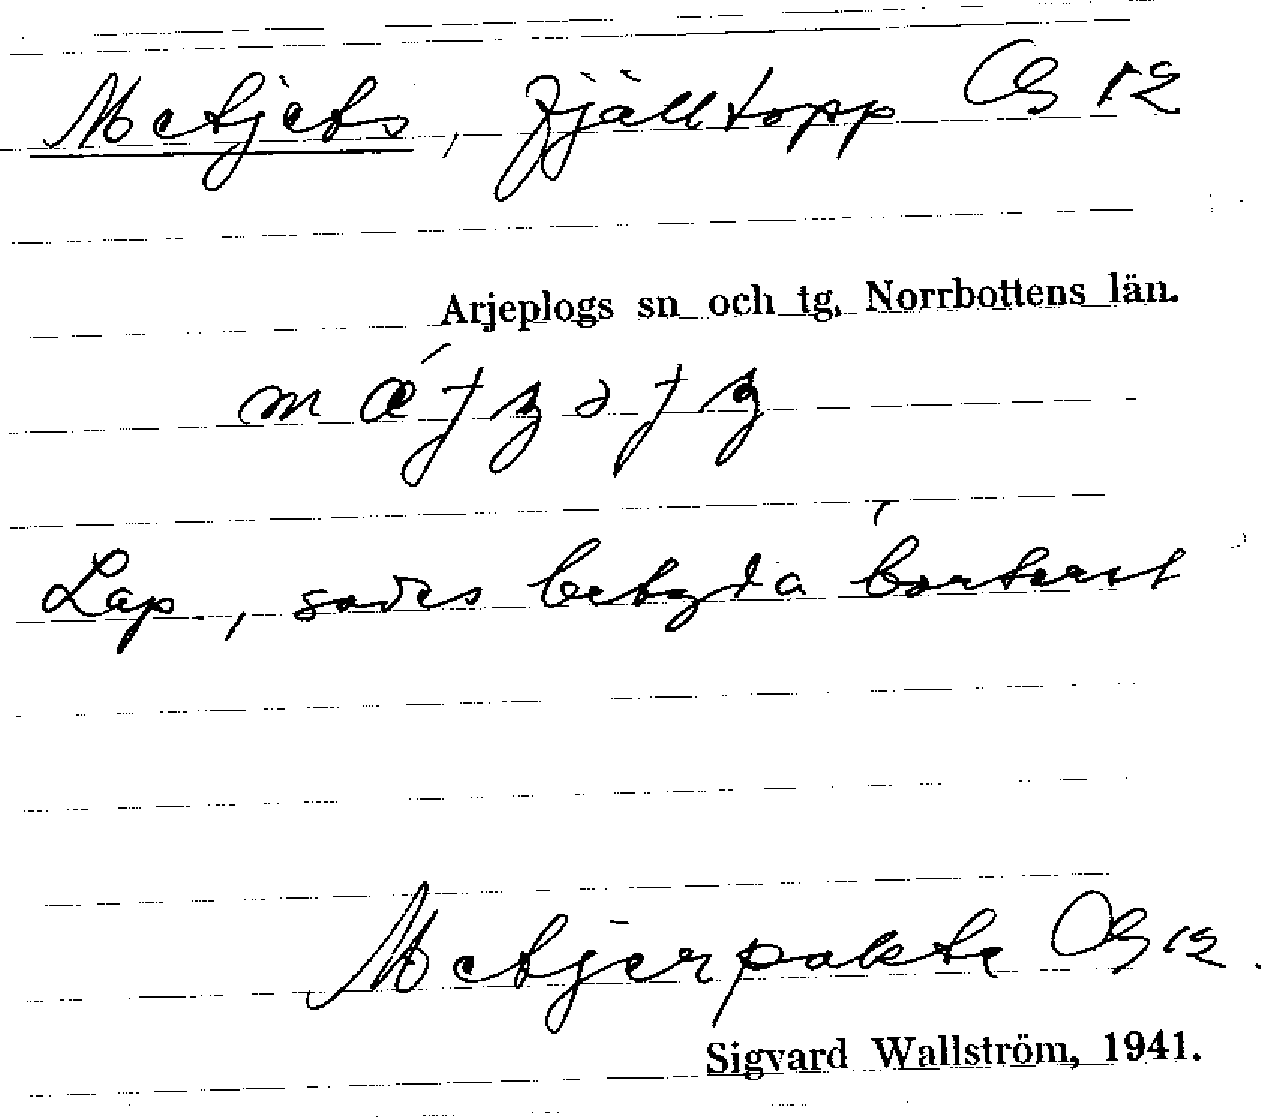 Metjets, fjälltopp Cg 12
Arjeplogs sn och tg, Norrbottens län.
Lap., sades betyda borterst
Metjerpakte Cg 12.
Sigvard Wallström, 1941.